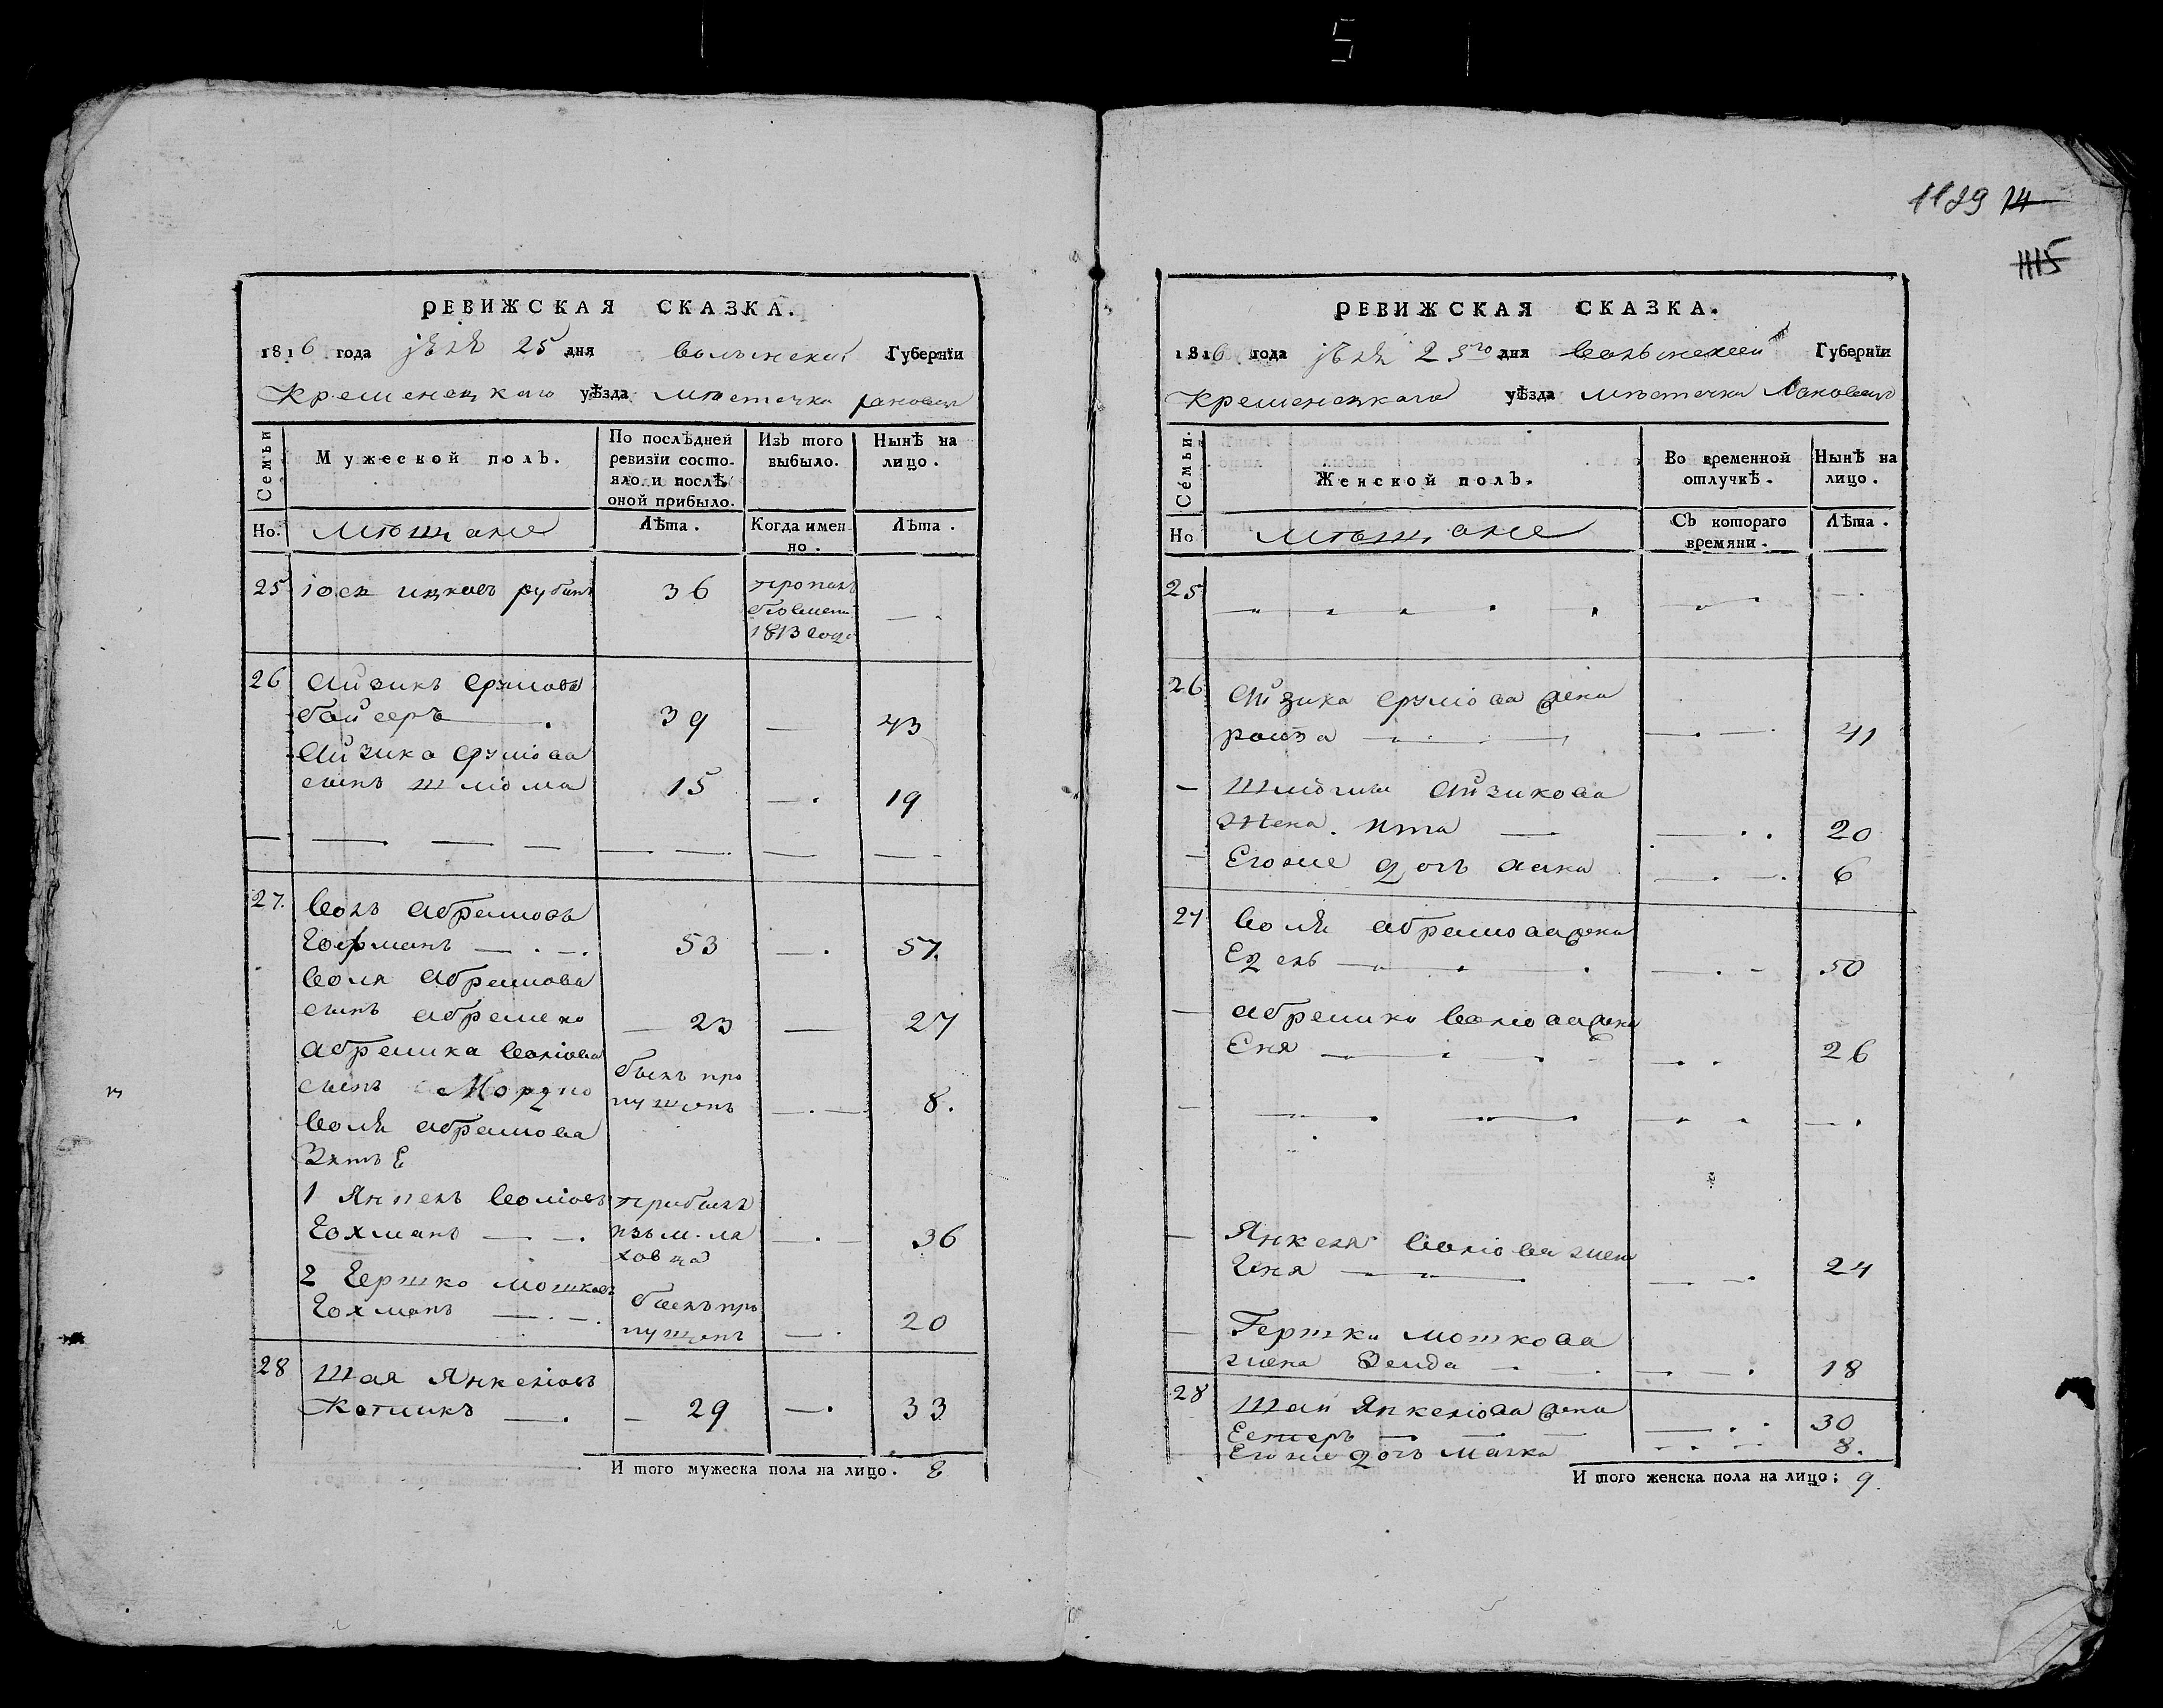 1129 14
1115
РЕВИЖСКАЯ СКАЗКА.
1816 года іюля 25 дня Волынской Губернїи
Кременецкаго уѣзда мѣстечка Лановецъ
Семьи
Мужеской полъ.
По послѣдней ревизїи состояло и послѣ оной прибыло.
Изъ того выбыло.
Нынѣ на лицо.
Но. мѣщане
Лѣта.
Когда именно.
Лѣта.
25 іось ицковъ рубинъ 36 пропалъ
1813 года
26 Айзикъ сруловъ
байсеръ 39 — 43
Айзика срулова
сынъ шлиома 15 — 19
27. Волъ абрамовъ
Гофманъ 53 — 57.
Воля абрамова
сынъ абрамко — 23 — 27
абрамка Волiова
сынъ Мордко былъ пропущенъ — 8.
Воля абрамова
Зять Е
1 Янкель Волiовъ прибылъ
Гохманъ изъ м. ляховца — 36
2 Гершко мошковъ
Гохманъ былъ пропущенъ — 20
28 Шая Янкелiовъ
Котликъ — 29 — 33
И того мужеска пола на лицо. 8
РЕВИЖСКАЯ СКАЗКА.
1816 года іюля 25го дня Волынской Губернїи
Кременецкаго уѣзда мѣстечка Лановецъ
Семьи.
Женской полъ.
Во временной отлучкѣ.
Нынѣ на лицо.
Но мѣщане
Съ котораго времяни.
Лѣта.
25
26 Айзика срулiова жена
ройза — 41
— Шлиомы Айзикова
жена Ита — 20
— Егоже дочь — 6
27 Воля абрамова жена
Едель — 50
— абрамко Волiова жена
Еня — 26
— Янкеля Волiова жена
Геня — 24
— Гершки мошкова
жена Зелда — 18
28 Шаи Янкелiова жена
Естеръ — 30
Егоже дочь малка 8.
И того женска пола на лицо; 9.